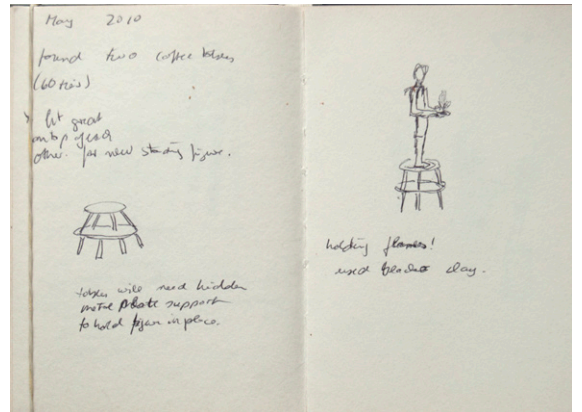 May 2010
found two coffee tables
(60ties)
fit great
on top of each
other. for new standing figure.
tables will need hidden
metal plate support
to hold figure in place.
holding flowers!
used clay.